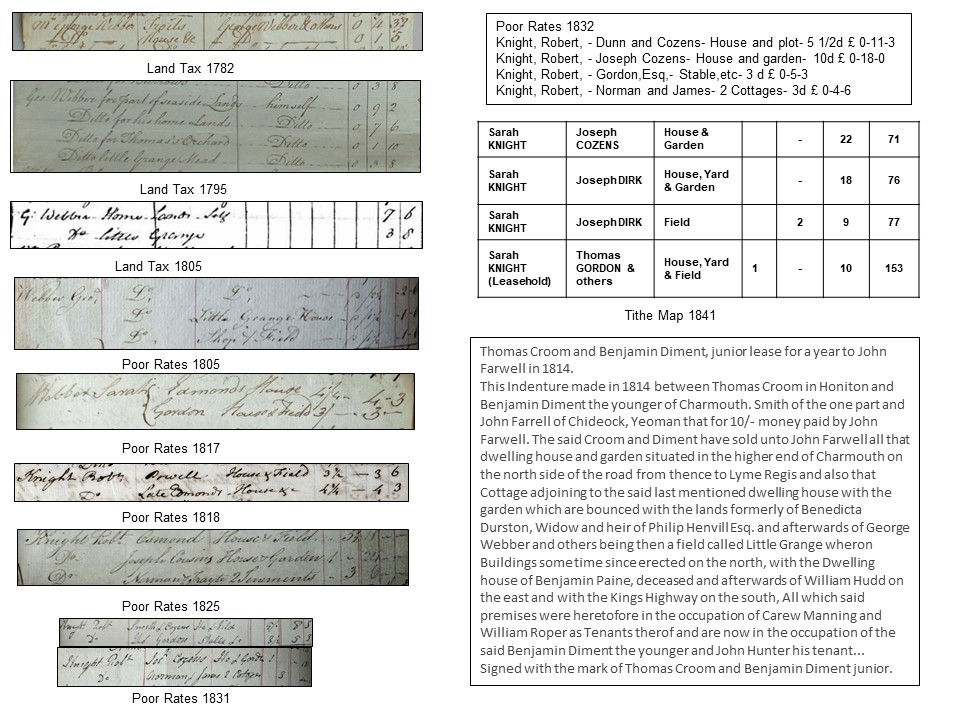 Mr George Webber
George Webber & others
House &c
Land Tax 1782
Geo: Webber for part of seaside Lands himself 0 9 2
Ditto for his home Lands Ditto 0 7 6
Ditto for Thomas's Orchard Ditto 0 1 10
Ditto little Grange Mead Ditto 0 3 8
Land Tax 1795
G: Webber Home Lands Self 7 6
Do little Grange 3 8
Land Tax 1805
Webber Geo, Do, Do,
Do Little Grange House
Do Shop & Field
Poor Rates 1805
Webber Sarah Edmonds House 4-3
Gordon House & Field 3/
Poor Rates 1817
Knight Robt House & Field 3 6
Do Late Edmonds House &c 4 3
Poor Rates 1818
Knight Robt Esmond House & Field
Do Joseph Cousins House & Garden
Do Norman & 2 Tenements
Poor Rates 1825
Knight Robt & Cozens
Do Gordon Stable &c
Knight Robt Jos Cozens Ho & Gorden
Do Norman & James 2 Cottages
Poor Rates 1831
Poor Rates 1832
Knight, Robert, - Dunn and Cozens- House and plot- 5 1/2d £ 0-11-3
Knight, Robert, - Joseph Cozens- House and garden- 10d £ 0-18-0
Knight, Robert, - Gordon,Esq,- Stable,etc- 3 d £ 0-5-3
Knight, Robert, - Norman and James- 2 Cottages- 3d £ 0-4-6
Sarah KNIGHT Joseph COZENS House & Garden - 22 71
Sarah KNIGHT Joseph DIRK House, Yard & Garden - 18 76
Sarah KNIGHT Joseph DIRK Field 2 9 77
Sarah KNIGHT (Leasehold) Thomas GORDON & others House, Yard & Field 1 - 10 153
Tithe Map 1841
Thomas Croom and Benjamin Diment, junior lease for a year to John
Farwell in 1814.
This Indenture made in 1814 between Thomas Croom in Honiton and
Benjamin Diment the younger of Charmouth. Smith of the one part and
John Farrell of Chideock, Yeoman that for 10/- money paid by John
Farwell. The said Croom and Diment have sold unto John Farwell all that
dwelling house and garden situated in the higher end of Charmouth on
the north side of the road from thence to Lyme Regis and also that
Cottage adjoining to the said last mentioned dwelling house with the
garden which are bounced with the lands formerly of Benedicta
Durston, Widow and heir of Philip Henvill Esq. and afterwards of George
Webber and others being then a field called Little Grange wheron
Buildings some time since erected on the north, with the Dwelling
house of Benjamin Paine, deceased and afterwards of William Hudd on
the east and with the Kings Highway on the south, All which said
premises were heretofore in the occupation of Carew Manning and
William Roper as Tenants therof and are now in the occupation of the
said Benjamin Diment the younger and John Hunter his tenant...
Signed with the mark of Thomas Croom and Benjamin Diment junior.